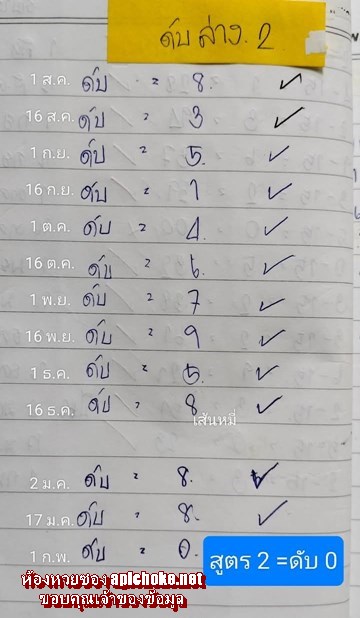 ดับ ล่าง. 2
1 ส.ค. ดับ = 8. ✓
16 ส.ค. ดับ = 3 ✓
1 ก.ย. ดับ = 5. ✓
16 ก.ย. ดับ = 1 ✓
1 ต.ค. ดับ = 4. ✓
16 ต.ค. ดับ = 6. ✓
1 พ.ย. ดับ = 7 ✓
16 พ.ย. ดับ = 9 ✓
1 ธ.ค. ดับ = 5. ✓
16 ธ.ค. ดับ = 8. ✓
เส้นหมี่
2 ม.ค. ดับ = 8. ✓
17 ม.ค. ดับ = 8. ✓
1 ก.พ. ดับ = 0.
สูตร 2 =ดับ 0
ห้องหวยซอง apichoke.net
ขอบคุณเจ้าของข้อมูล